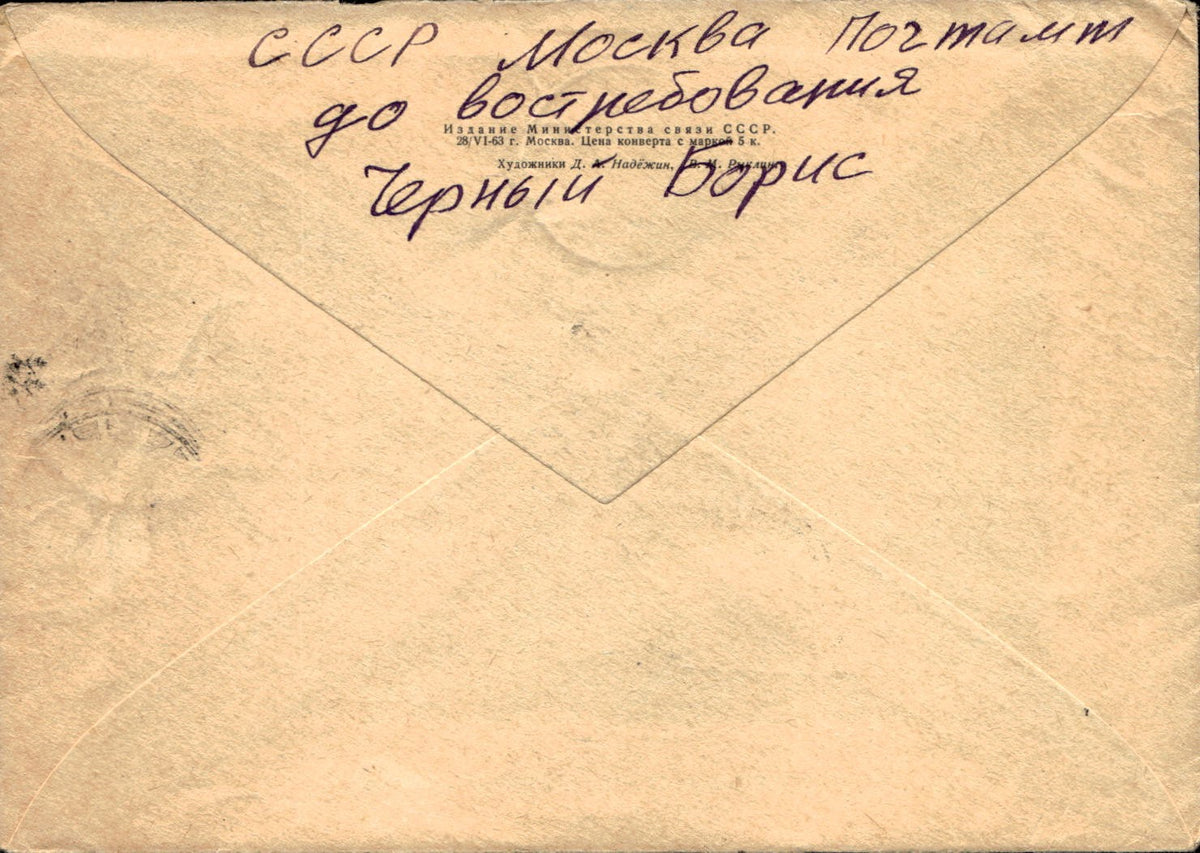 СССР Москва Почтамт
до востребования
Издание Министерства связи СССР.
28/VI-63 г. Москва. Цена конверта с маркой 5 к.
Художники Д. А. Надёжин,
Черный Борис